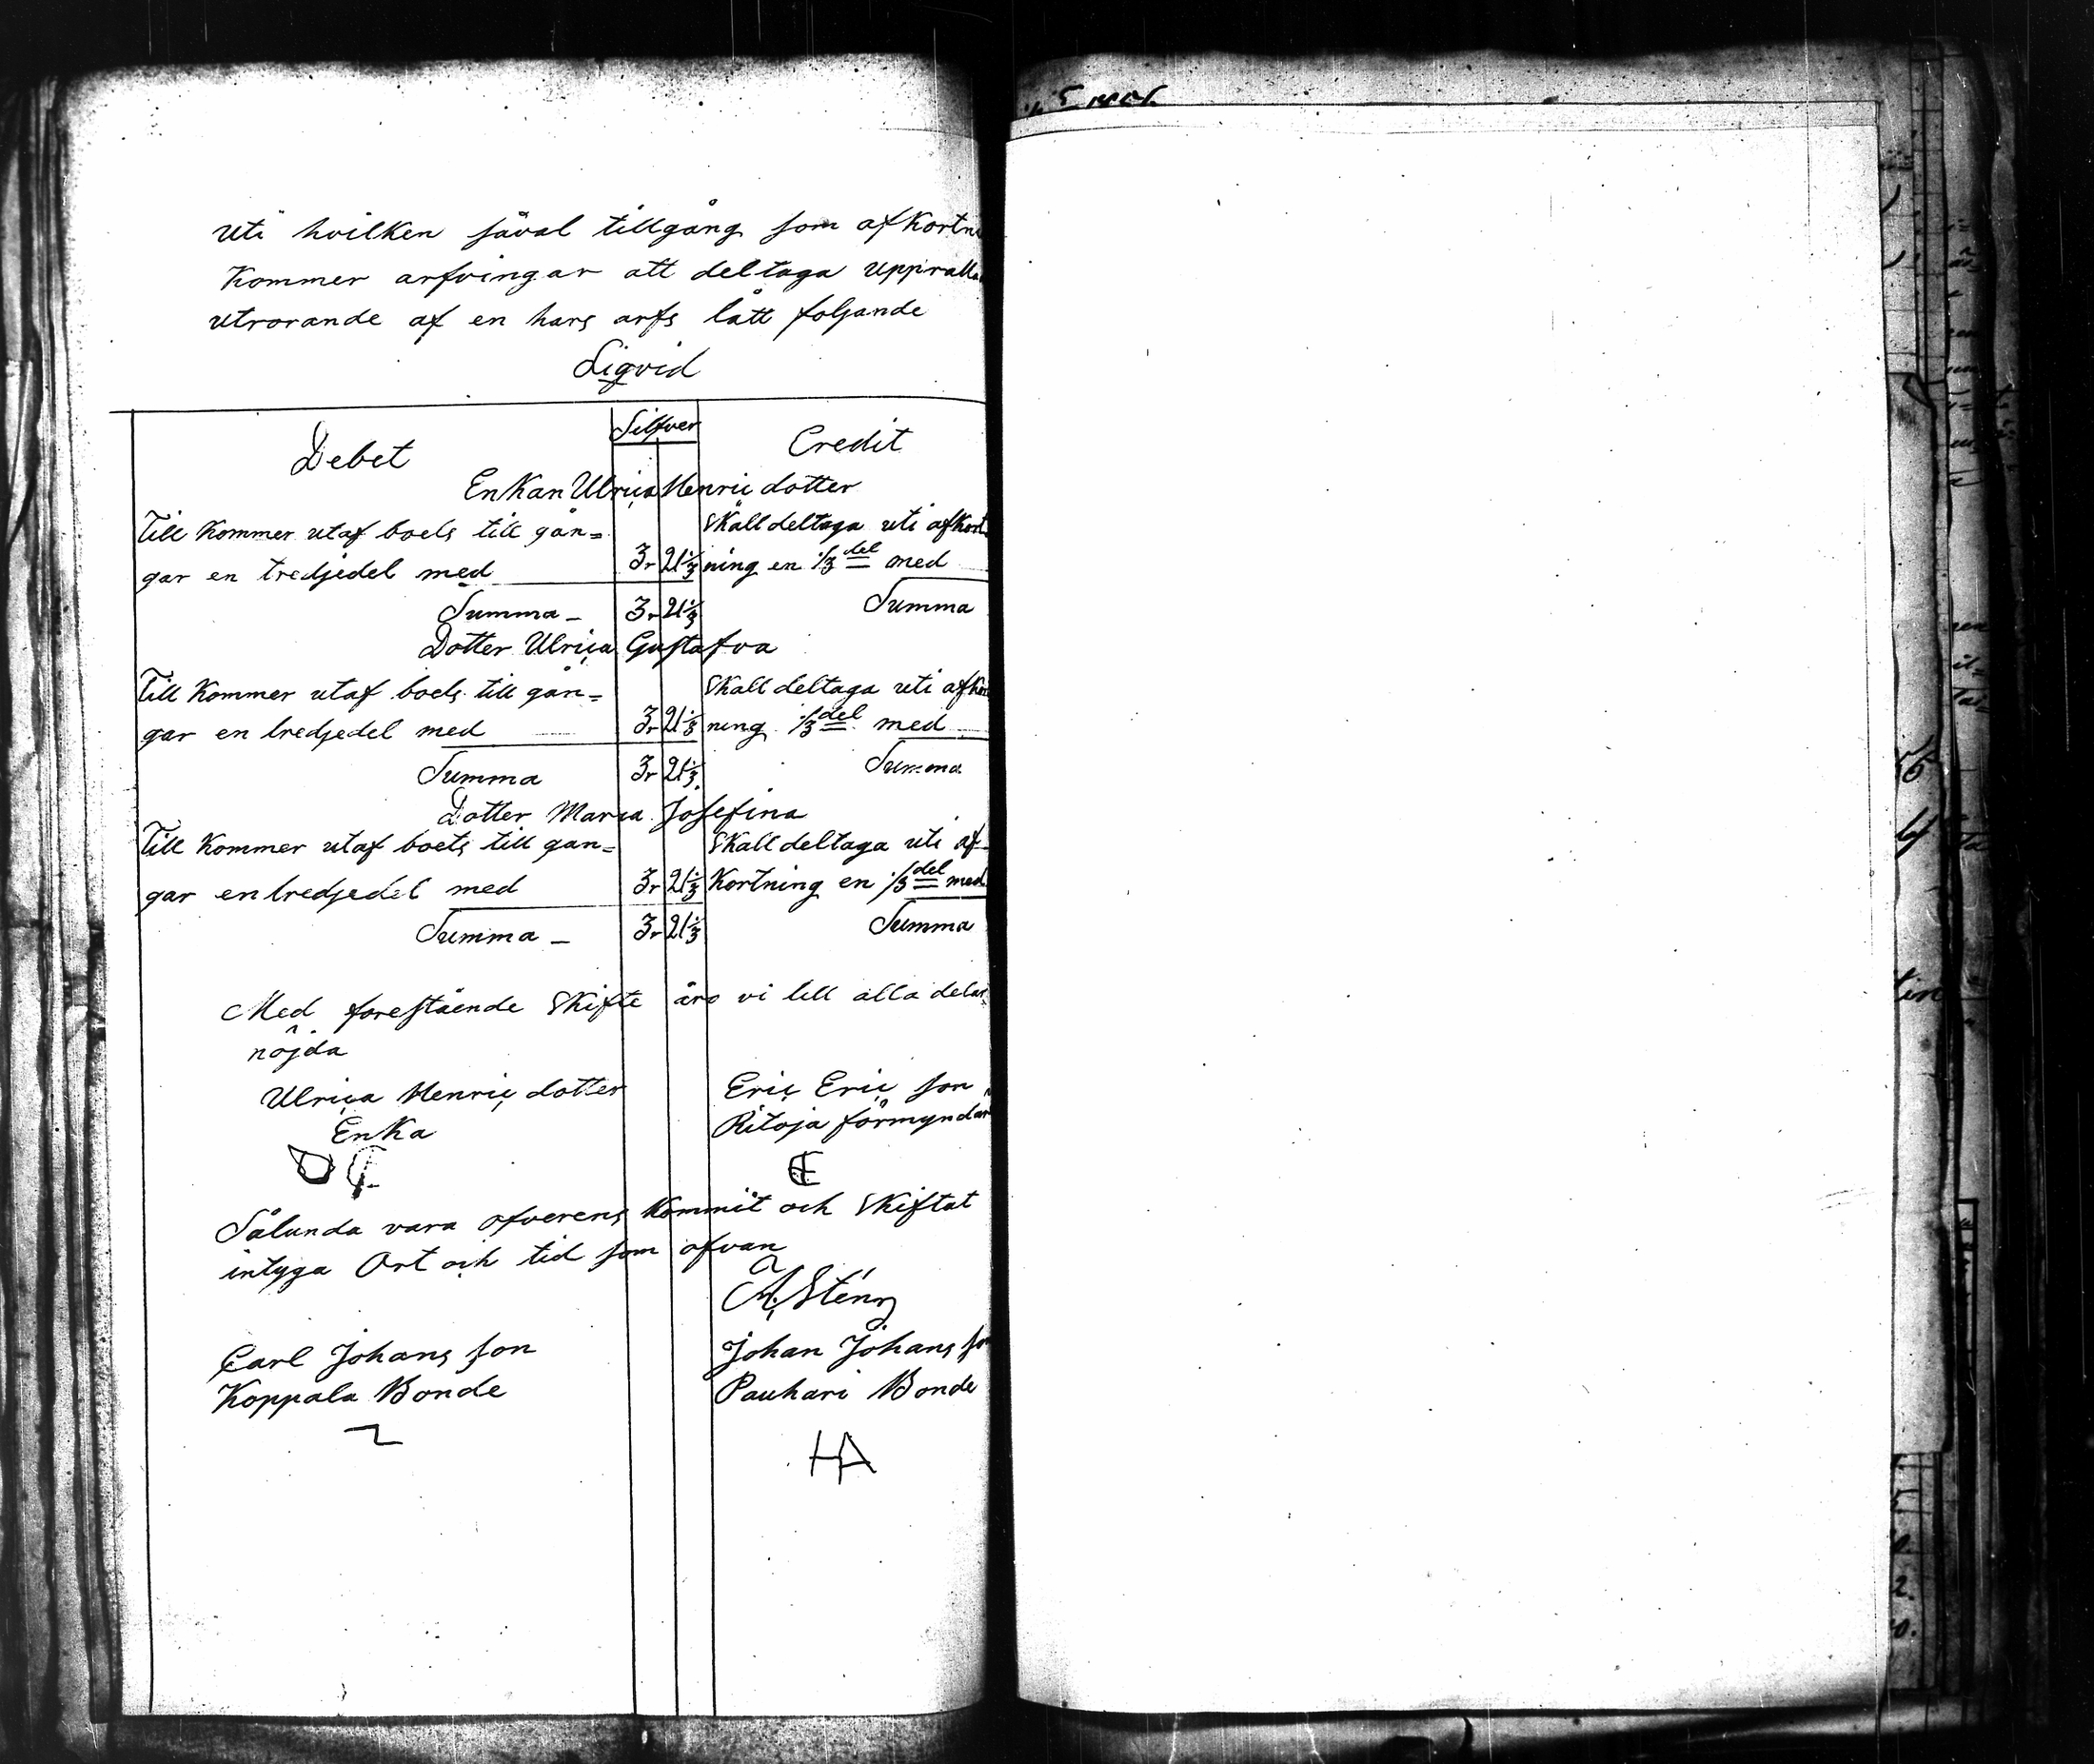 uti hvilken såval tillgång som afkortn
Kommer arfvingar att deltaga uppratta
utrorande af en hars arfs lått foljande
Liqvid
Debet Silfver Credit
EnKan Ulrica Henric dotter
Till Kommer utaf boets till gån=
gar en tredjedel med 3r 21 1/3
Skall deltaga uti afKort
ning en 1/3 del med
Summa – 3r 21 1/3 Summa
Dotter Ulrica Gustafva
Till Kommer utaf boets till gån=
gar en tredjedel med 3r 21 1/3
Skall deltaga uti afKor
ning 1/3 del med
Summa 3r 21 1/3 Summa
Dotter Maria Josefina
Till Kommer utaf boets till gan=
gar en tredjedel med 3r 21 1/3
Skall deltaga uti af-
Kortning en 1/3 del med
Summa – 3r 21 1/3 Summa
Med forestående Skifte äro vi till alla delar
nöjda
Ulrica Henric dotter
EnKa
Eric Eric son
Ritoja förmyndar
Sålunda vara ofverens Kommit och Skiftat
intyga Ort och tid som ofvan
A. Stén
Carl Johans son
Koppala Bonde
Johan Johans so
Pauhari Bonde
HA